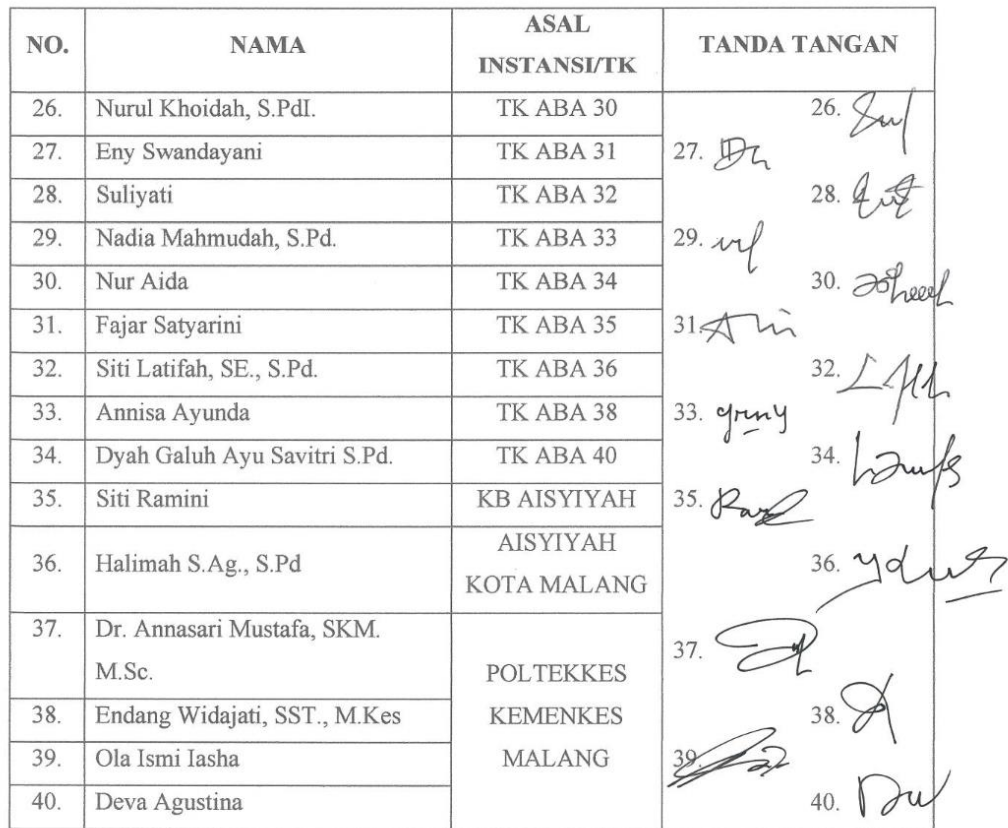 NO. NAMA ASAL INSTANSI/TK TANDA TANGAN
26. Nurul Khoidah, S.PdI. TK ABA 30 26.
27. Eny Swandayani TK ABA 31 27.
28. Suliyati TK ABA 32 28.
29. Nadia Mahmudah, S.Pd. TK ABA 33 29.
30. Nur Aida TK ABA 34 30.
31. Fajar Satyarini TK ABA 35 31.
32. Siti Latifah, SE., S.Pd. TK ABA 36 32.
33. Annisa Ayunda TK ABA 38 33.
34. Dyah Galuh Ayu Savitri S.Pd. TK ABA 40 34.
35. Siti Ramini KB AISYIYAH 35.
36. Halimah S.Ag., S.Pd AISYIYAH KOTA MALANG 36.
37. Dr. Annasari Mustafa, SKM. M.Sc. POLTEKKES KEMENKES MALANG 37.
38. Endang Widajati, SST., M.Kes 38.
39. Ola Ismi Iasha 39.
40. Deva Agustina 40.